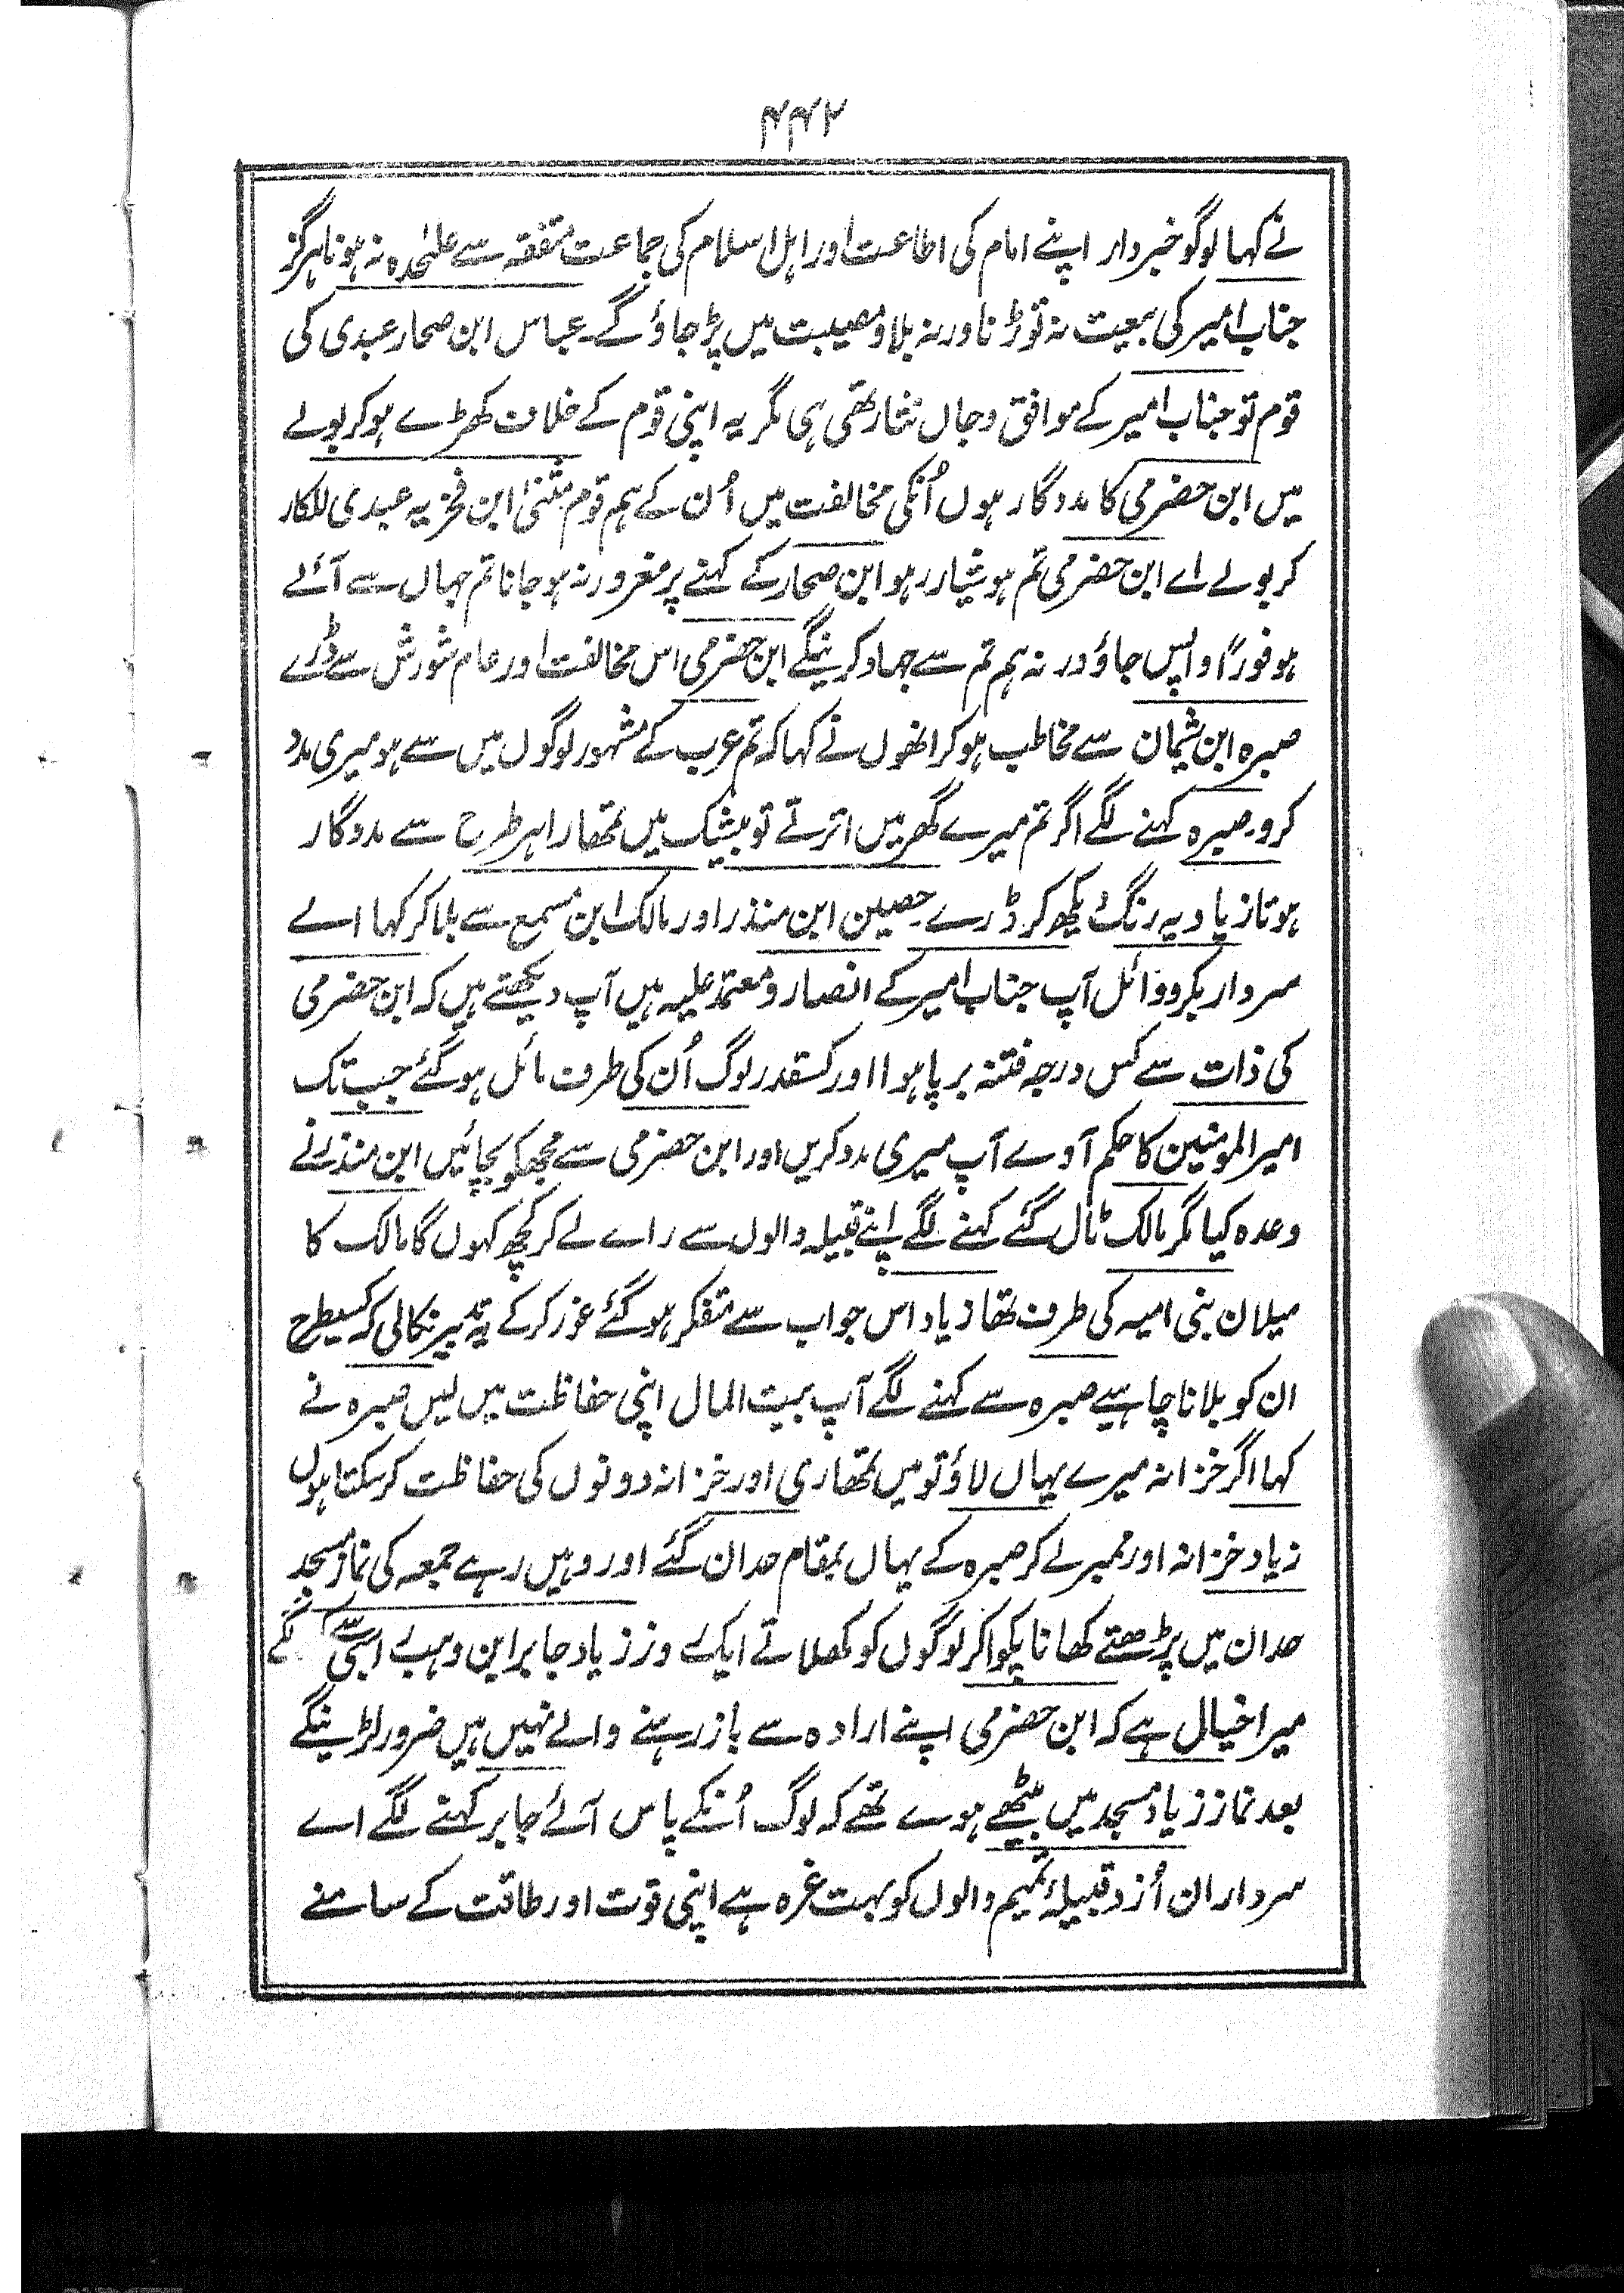 ۴۴۲
نے کہا لوگو خبردار اپنے امام کی اطاعت اور اہل اسلام کی جماعت متفقہ سے علٰحدہ نہ ہونا ہرگز
جناب امیر کی بیعت نہ توڑنا ورنہ بلا و مصیبت میں پڑجاؤ گے۔ عباس ابن صحار عبدی کی
قوم تو جناب امیر کے موافق و جان نثار تھی ہی مگر یہ اپنی قوم کے خلاف کھڑے ہوکر بولے
میں ابن حضرمی کا مددگار ہوں اُنکی مخالفت میں اُن کے ہم قوم مثنیٰ ابن مخزیہ عبدی للکار
کر بولے اے ابن حضرمی تم ہوشیار رہو ابن صحار کے کہنے پر مغرور نہ ہو جانا تم جہاں سے آئے
ہو فوراً واپس جاؤ ورنہ ہم تم سے جہاد کرینگے ابن حضرمی اس مخالفت اور عام شورش سے ڈرے
صبرہ ابن شیمان سے مخاطب ہوکر انھوں نے کہا کہ تم عرب کے مشہور لوگوں میں سے ہو میری مدد
کرو۔ صبرہ کہنے لگے اگر تم میرے گھر میں اترتے تو بیشک میں تمھارا ہر طرح سے مددگار
ہوتا زیاد یہ رنگ دیکھ کر ڈرے۔ حصین ابن منذر اور مالک ابن مسمع سے بلاکر کہا اے
سردار بکر و وائل آپ جناب امیر کے انصار و معتمد علیہ ہیں آپ دیکھتے ہیں کہ ابن حضرمی
کی ذات سے کس درجہ فتنہ برپا ہوا اور کسقدر لوگ اُن کی طرف مائل ہوگئے جب تک
امیر المومنین کا حکم آوے آپ میری مدد کریں اور ابن حضرمی سے مجھکو بچائیں ابن منذر نے
وعدہ کیا مگر مالک ٹال گئے کہنے لگے اپنے قبیلہ والوں سے راے لے کر کچھ کہوں گا مالک کا
میلان بنی امیہ کی طرف تھا زیاد اس جواب سے متفکر ہوگئے غور کرکے یہ تدبیر نکالی کہ کسیطرح
ان کو بلانا چاہیے صبرہ سے کہنے لگے آپ بیت المال اپنی حفاظت میں لیں صبرہ نے
کہا اگر خزانہ میرے یہاں لاؤ تو میں تمھاری اور خزانہ دونوں کی حفاظت کرسکتا ہوں
زیاد خزانہ اور ممبر لے کر صبرہ کے یہاں بمقام حدان گئے اور وہیں رہے جمعہ کی نماز مسجد
حدان میں پڑھتے کھانا پکواکر لوگوں کو کھلاتے ایک روز زیاد جابر ابن وہب اسبی سے کہنے لگے
میرا خیال ہے کہ ابن حضرمی اپنے ارادہ سے باز رہنے والے نہیں ہیں ضرور لڑینگے
بعد نماز زیاد مسجد میں بیٹھے ہوے تھے کہ لوگ اُنکے پاس آئے جابر کہنے لگے اے
سرداران اُزد قبیلۂ تمیم والوں کو بہت غرہ ہے اپنی قوت اور طاقت کے سامنے